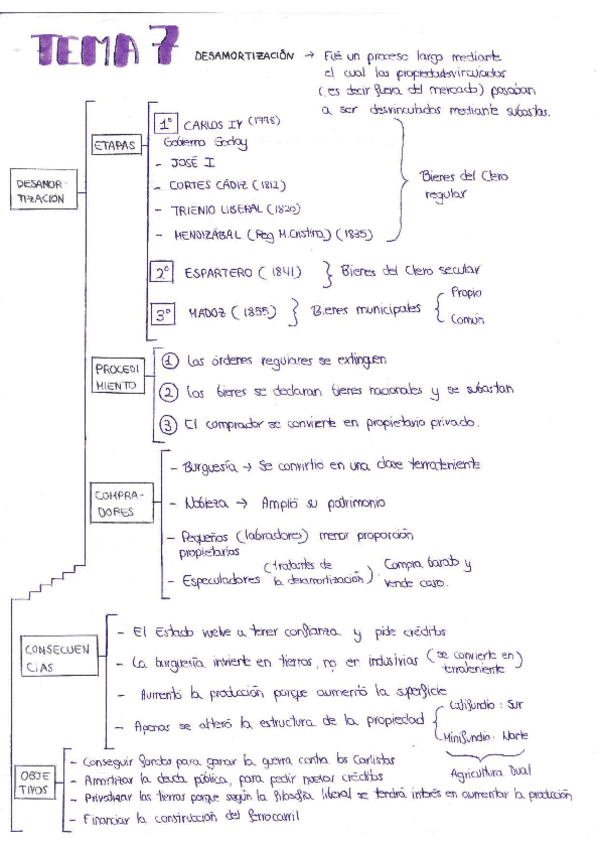 TEMA 7
DESAMORTIZACIÓN → Fué un proceso largo mediante
el cual las propiedades vinculadas
(es decir fuera del mercado) pasaban
a ser desvinculadas mediante subastas.
DESAMOR-
TIZACION
ETAPAS
1º CARLOS IV (1798)
Gobierno Godoy
- JOSÉ I
- CORTES CÁDIZ (1812)
- TRIENIO LIBERAL (1820)
- MENDIZÁBAL (Reg M.Cristina) (1835)
Bienes del Clero
regular
2º ESPARTERO (1841) } Bienes del Clero secular
3º MADOZ (1855) } Bienes municipales {
Propio
Común
PROCEDI
MIENTO
1 Las órdenes regulares se extinguen
2 Los bienes se declaran bienes nacionales y se subastan
3 El comprador se convierte en propietario privado.
COMPRA-
DORES
- Burguesía → Se convirtio en una clase terrateniente
- Nobleza → Amplió su patrimonio
- Pequeños (labradores) menor proporción
propietarios
- Especuladores (tratantes de
la desamortización). Compra barato y
vende caro.
CONSECUEN
CIAS
- El Estado vuelve a tener confianza y pide créditos
- La burguesía invierte en tierras, no en industrias (se convierte en
terrateniente)
- Aumentó la producción porque aumentó la superficie
- Apenas se alteró la estructura de la propiedad {
Latifundio: Sur
Minifundio: Norte
Agricultura Dual
OBJE
TIVOS
- Conseguir fondos para ganar la guerra contra los Carlistas
- Amortizar la deuda pública, para pedir nuevos créditos
- Privatizar las tierras porque según la filosofía liberal se tendrá interés en aumentar la producción
- Financiar la construcción del ferrocarril